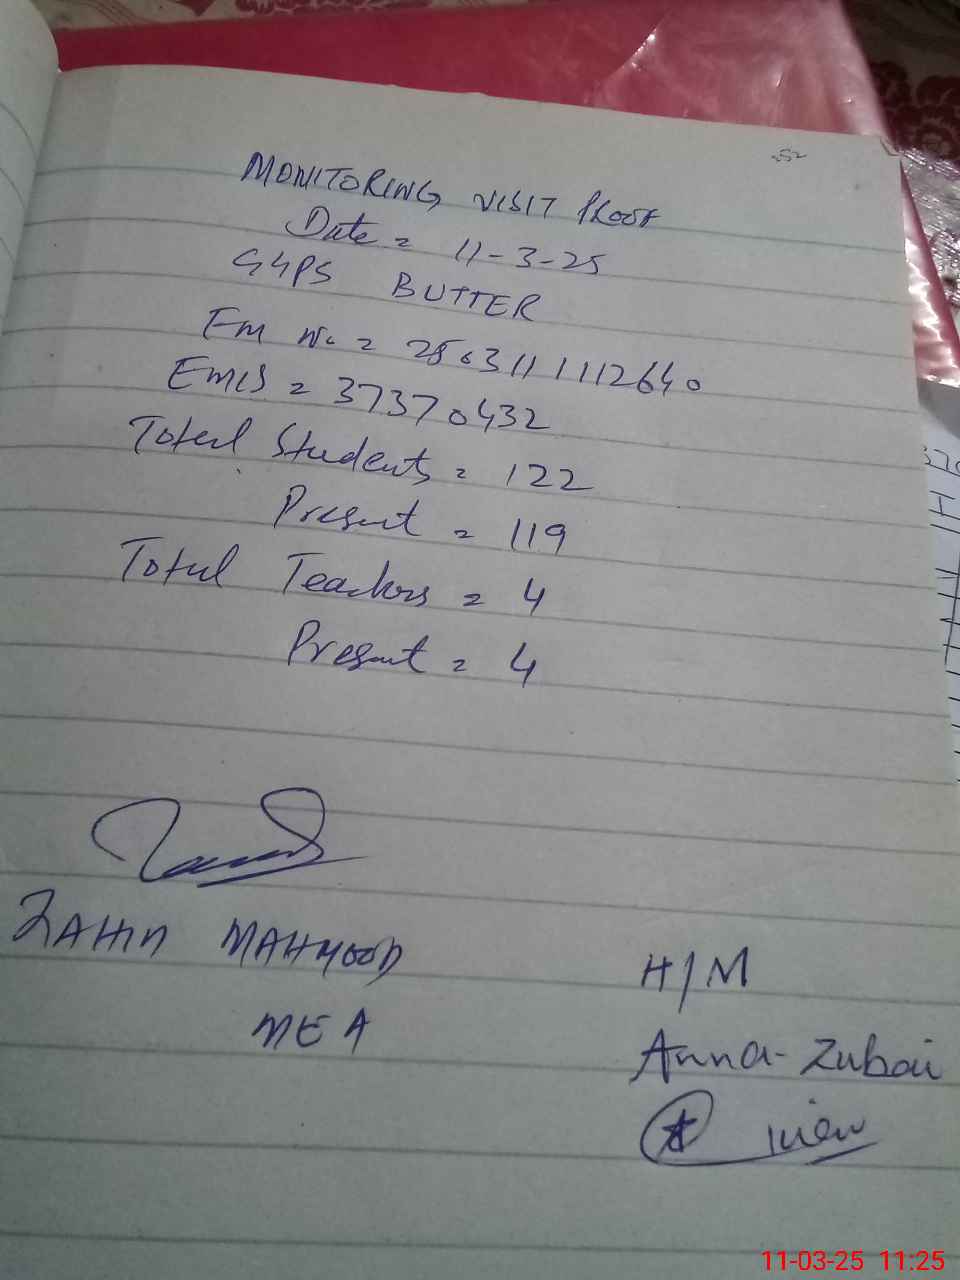 252
MONITORING VISIT PROOF
Date = 11-3-25
GGPS BUTTER
Em No = 2563111112640
EMIS = 37370432
Total Students = 122
Present = 119
Total Teachers = 4
Present = 4
MAHMOOD
MEA
H/M
Anna-Zubai
11-03-25 11:25